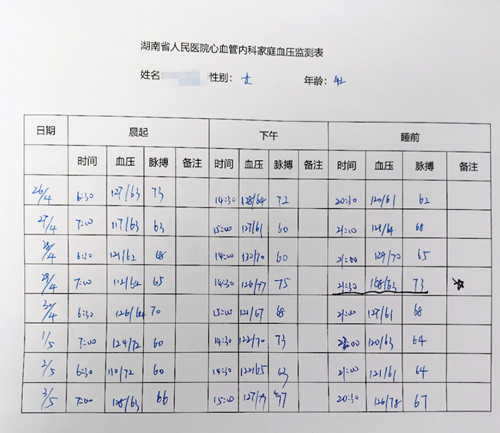 湖南省人民医院心血管内科家庭血压监测表
姓名 性别： 女 年龄：42
日期 晨起 下午 睡前
时间 血压 脉搏 备注 时间 血压 脉搏 备注 时间 血压 脉搏 备注
26/4 6:30 127/63 73 14:30 128/64 72 20:30 120/61 62
27/4 7:00 117/63 63 15:00 127/61 60 21:00 128/64 68
28/4 6:30 121/62 68 14:00 132/70 60 21:00 129/70 65
29/4 7:00 112/64 65 14:30 126/77 75 21:30 168/93 73
30/4 6:30 126/64 70 15:00 121/67 68 21:00 127/61 68
1/5 7:00 124/72 60 14:30 122/70 73 22:00 120/63 64
2/5 6:30 110/72 60 14:30 122/65 63 21:00 121/61 64
3/5 7:00 128/63 66 15:00 127/ 20:30 126/78 67